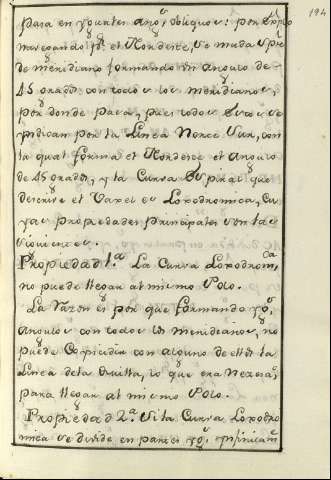 194
pasa en iguales angs obliquos: por exmplo
navegando pr. el Nordeste, se muda spre
de meridiano formando un angulo de
45 grados con todos los meridianos,
por donde pasa, pues todos estos se
por la Linea Norte Sur, con
la qual forma el Nordeste el angulo
de 45 grados, y la Curva Espiral que
descrive el Baxel es Loxodromica, cu
yas propiedades principales son las
siguientes.
Propiedad 1a. La Curva Loxodromca
no puede llegar al mismo Polo.
La razon es por que formando ygs
angulos con todos los meridianos, no
puede Coincidir con alguno de ellos la
Linea de la Quilla, lo que era nezeso
para llegar al mismo Polo.
Propiedad 2a. Si la Curva Loxodro
mica se divide en partes ygs